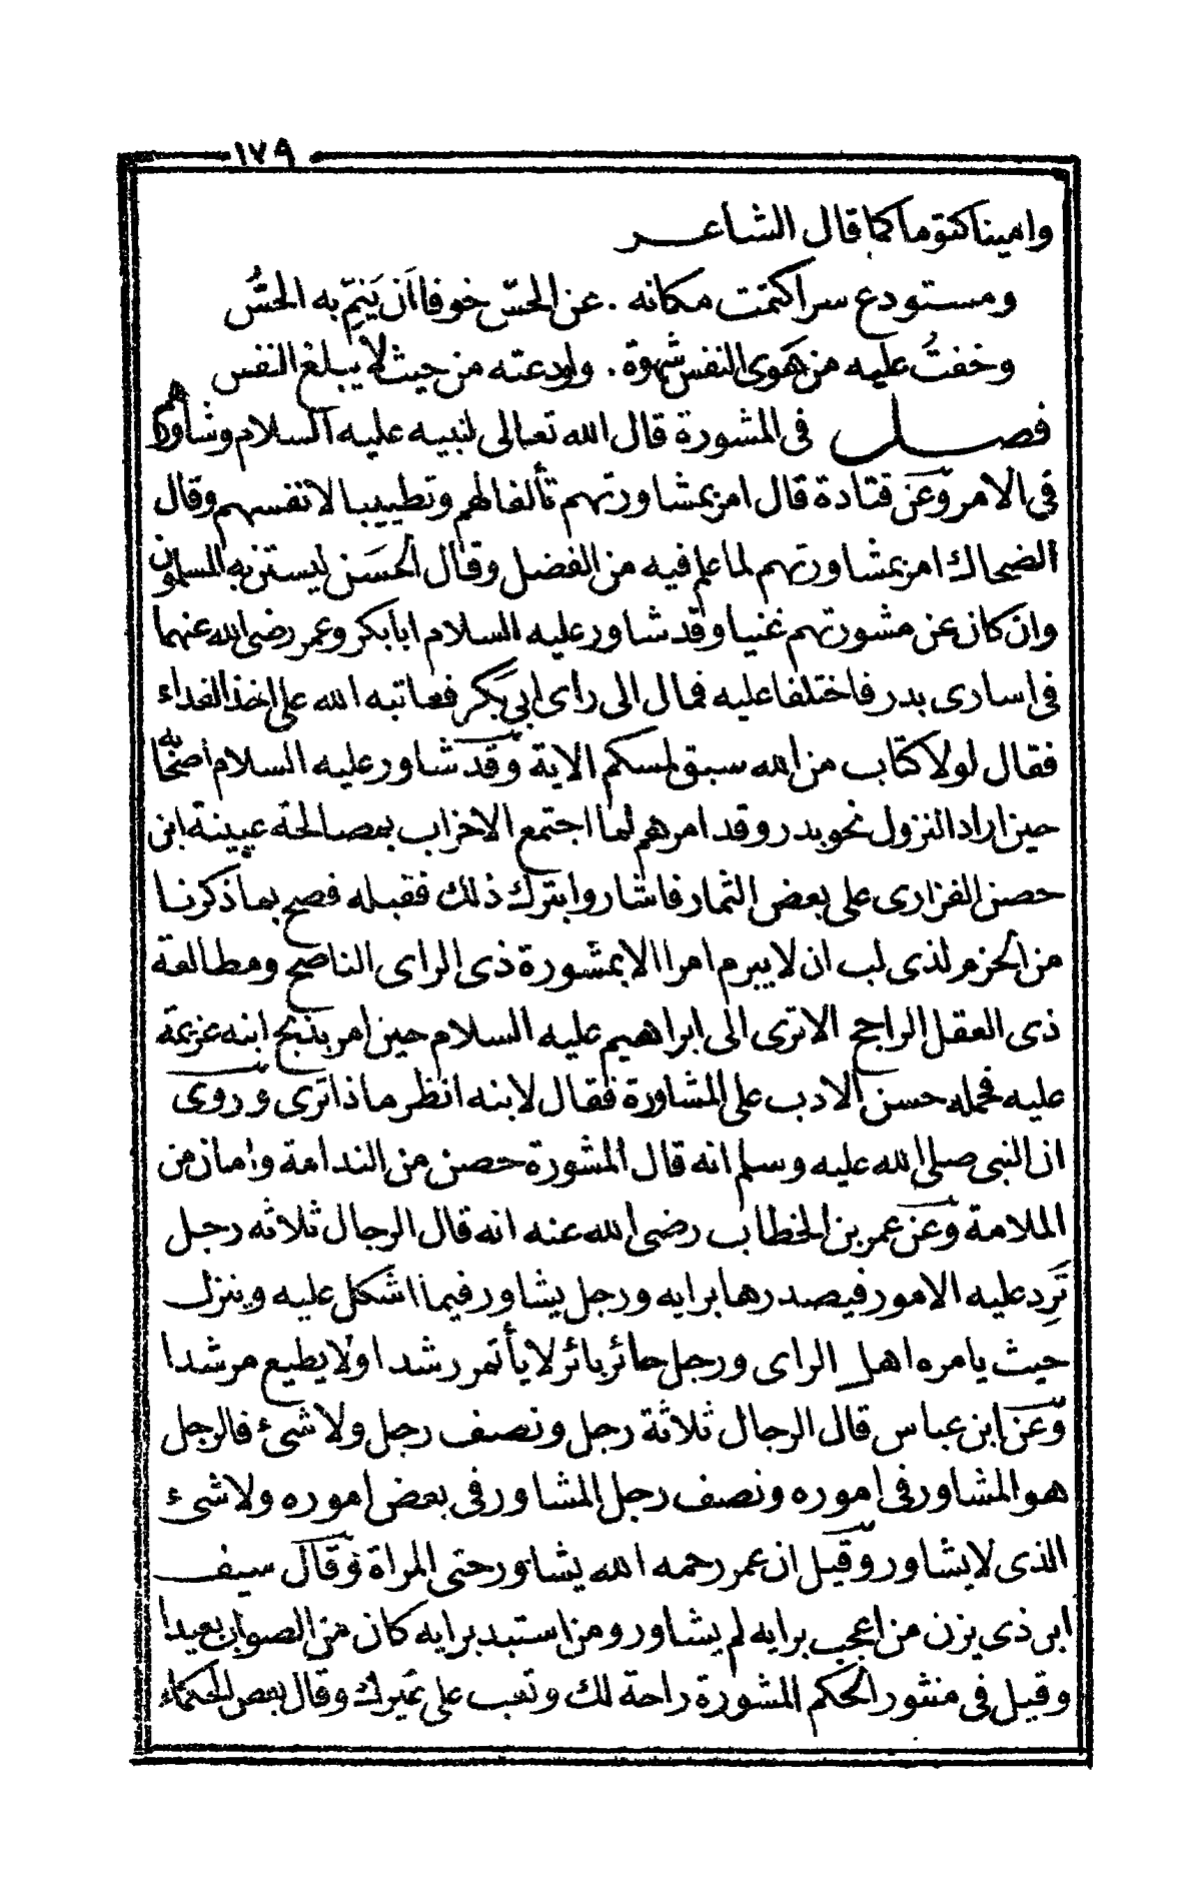 ١٧٩
وامينا كتوما كما قال الشاعر
ومستودع سرا كتمت مكانه . عن الحسّ خوفا اَن يَنمِّ به الحسُّ
وخفتُ عليه من هَوى النفس شهوة . واودعته من حيث لا يبلغ النفس
فصل فى المشورة قال الله تعالى لنبيه عليه السلام وشاورهم
فى الامر وعن قتادة قال امر بمشاورتهم تألفا لهم وتطييبا لانفسهم وقال
الضحاك امر بمشاورتهم لما علم فيه من الفضل وقال الحَسَن ليستن به المسلمون
وان كان عن مشورتهم غنيا وقد شاور عليه السلام ابابكر وعمر رضى الله عنهما
فى اسارى بدر فاختلفا عليه فمال الى راى ابى بَكر فعاتبه الله على اخذ الفداء
فقال لولا كتاب من الله سبق لمسكم الاية وقد شاور عليه السلام اصحابه
حين اراد النزول نحو بدر وقد امرهم لما اجتمع الاحزاب بمصالحة عيينة ابن
حصن الفزارى على بعض الثمار فاشاروا بترك ذلك فقبله فصح بما ذكرنا
من الحزم لذى لب ان لا يبرم امرا الا بمشورة ذى الراى الناصح ومطالعة
ذى العقل الراجح الا ترى الى ابراهيم عليه السلام حين امر بذبح ابنه عزيمة
عليه فحمله حسن الادب على المشاورة فقال لابنه انظر ماذا ترى وروى
ان النبى صلى الله عليه وسلم انه قال المشورة حصن من الندامة وامان من
الملامة وعن عمر بن الخطاب رضى الله عنه انه قال الرجال ثلاثه رجل
تَرِد عليه الامور فيصدرها برايه ورجل يشاور فيما اشكل عليه وينزل
حيث يامره اهل الراى ورجل حائر بائر لا يأتمر رشدا ولا يطيع مرشدا
وعن ابن عباس قال الرجال ثلاثة رجل ونصف رجل ولا شىء فالرجل
هو المشاور فى اموره ونصف رجل المشاور فى بعض اموره ولا شىء
الذى لا يشاور وقيل ان عمر رحمه الله يشاور حتى المراة وقال سيف
ابن ذى يزن من اعجب برايه لم يشاور ومن استبد برايه كان من الصواب بعيدا
وقيل فى منثور الحكم المشورة راحة لك وتعب على غيرك وقال بعض الحكماء